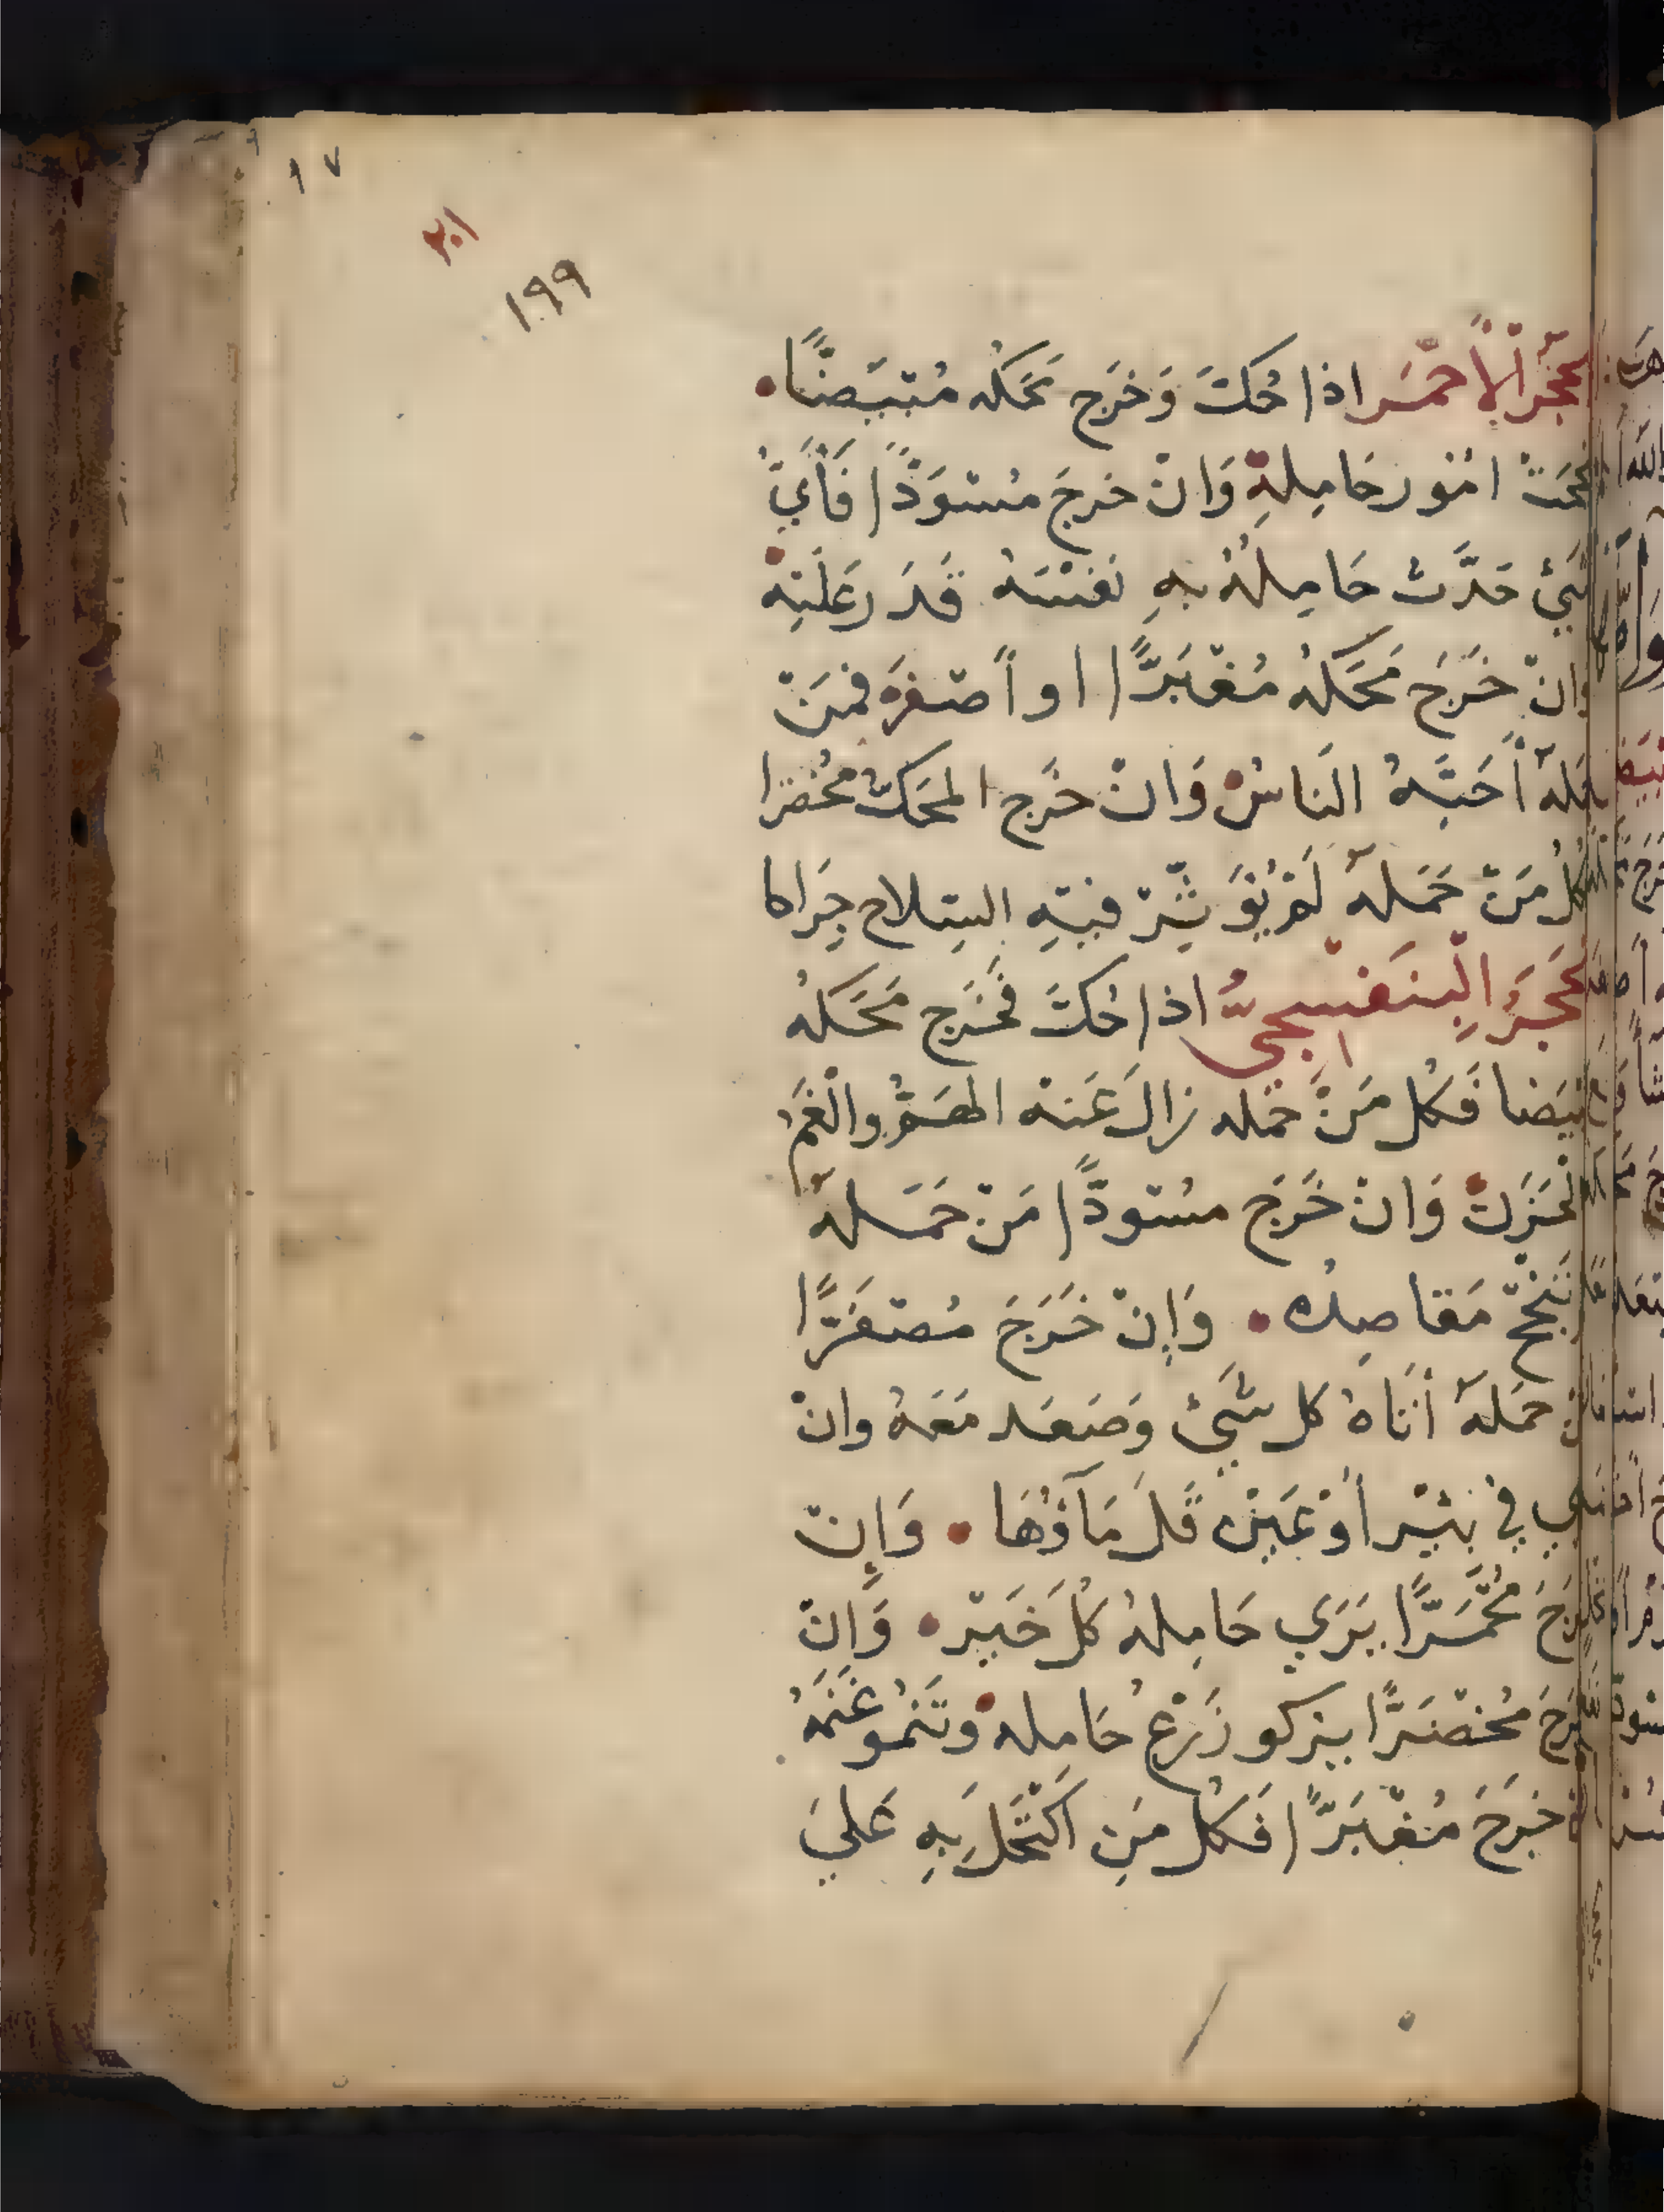 ١٧
٢٠١
١٩٩
الحَجَرُ الْأَحْمَر اذا حُكَّ وَخَرَج مَحَكُه مُبْيَضًّا
نجحَتْ امُور حَامِلِهِ وَانْ خرجَ مُسْوَدًّا فَأَيَّ
شَيْءٍ حَدَّثَ حَامِلُهُ بِهِ نَفْسَهُ قَدَرَ عَلَيْهِ
وانْ خَرَجَ مَحَكُهُ مُغْبَرًّا او أَصْفَرَ فمَنْ
حَمَلَهُ أَحَبَّهُ النَاسُ وَانْ خَرَج المحَكُّ مُخْضَرا
فكُلُ مَنْ حَمَلَهُ لَمْ يُؤَثِّرْ فيْهِ السِلاح
الحَجَرُ الْبَنَفْسَجِيُّ اذا حُكَّ فَخَرَج مَحَكُهُ
مُبْيَضا فَكُل مَنْ حَمَله زالَ عَنْهُ الهَمُّ والْغَمُ
وَالحَزَنُ وَانْ خَرَجَ مُسْودًّا مَنْ حَمَلَهُ
لَمْ تَنْجَحْ مَقَاصِدُه وَإِنْ خَرَجَ مُصْفَرًّا
فَمَنْ حَمَلَهُ أَتَاهُ كل شَيْءٍ وَصَعَد مَعَهُ وانْ
في بِئْرٍ أوْ عَيْنٍ قَلَ مَآؤُهَا وَإِنْ
خَرَجَ مُحْمَرًّا يَرَي حَامِلُهُ كُلَ خَيْرٍ وَانْ
خَرَجَ مُخْضَرًّا يزكو زَرْعُ حَامِلِهِ وتَنْمُو غَنَمُهُ
وان خَرَجَ مُغْبَرًّا فَكُل مَنِ اكْتَحَلَ بِهِ عَليَ